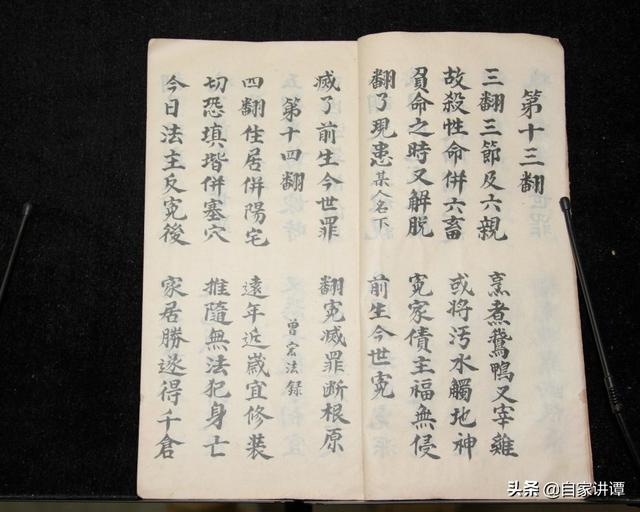 第十三翻
三翻三節及六親 烹煮鵞鴨又宰雞
故殺性命併六畜 或将汚水觸地神
負命之時又解脱 寃家債主福無侵
翻了現患某人名下 前生今世寃
滅了前生今世罪 翻寃滅罪断根原
第十四翻 曾宏法録
四翻住居併陽宅 遠年近歲宜修装
切恐填堦併塞穴 推随無法犯身亡
今日法主反寃後 家居勝遂得千倉
头条 @自家讲谭